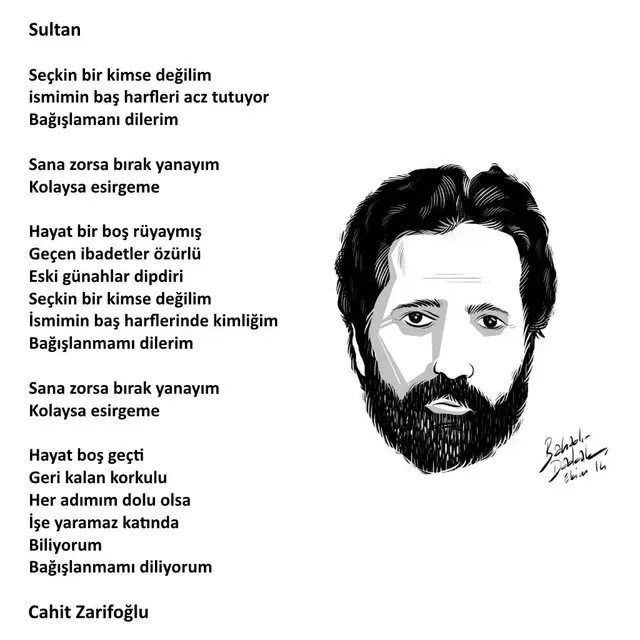 Sultan
Seçkin bir kimse değilim
ismimin baş harfleri acz tutuyor
Bağışlamanı dilerim
Sana zorsa bırak yanayım
Kolaysa esirgeme
Hayat bir boş rüyaymış
Geçen ibadetler özürlü
Eski günahlar dipdiri
Seçkin bir kimse değilim
İsmimin baş harflerinde kimliğim
Bağışlanmamı dilerim
Sana zorsa bırak yanayım
Kolaysa esirgeme
Hayat boş geçti
Geri kalan korkulu
Her adımım dolu olsa
İşe yaramaz katında
Biliyorum
Bağışlanmamı diliyorum
Cahit Zarifoğlu
Ekim 14